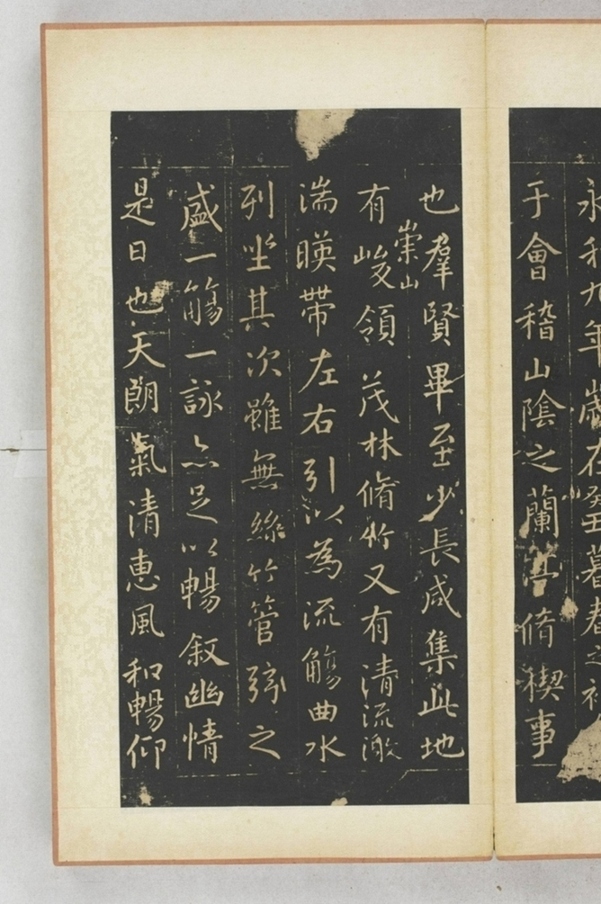 永和九年歲在癸丑暮春之初
于會稽山陰之蘭亭脩稧事
也羣賢畢至少長咸集此地
有崇山峻領茂林脩竹又有清流激
湍暎帶左右引以為流觴曲水
列坐其次雖無絲竹管弦之
盛一觴一詠亦足以暢叙幽情
是日也天朗氣清惠風和暢仰